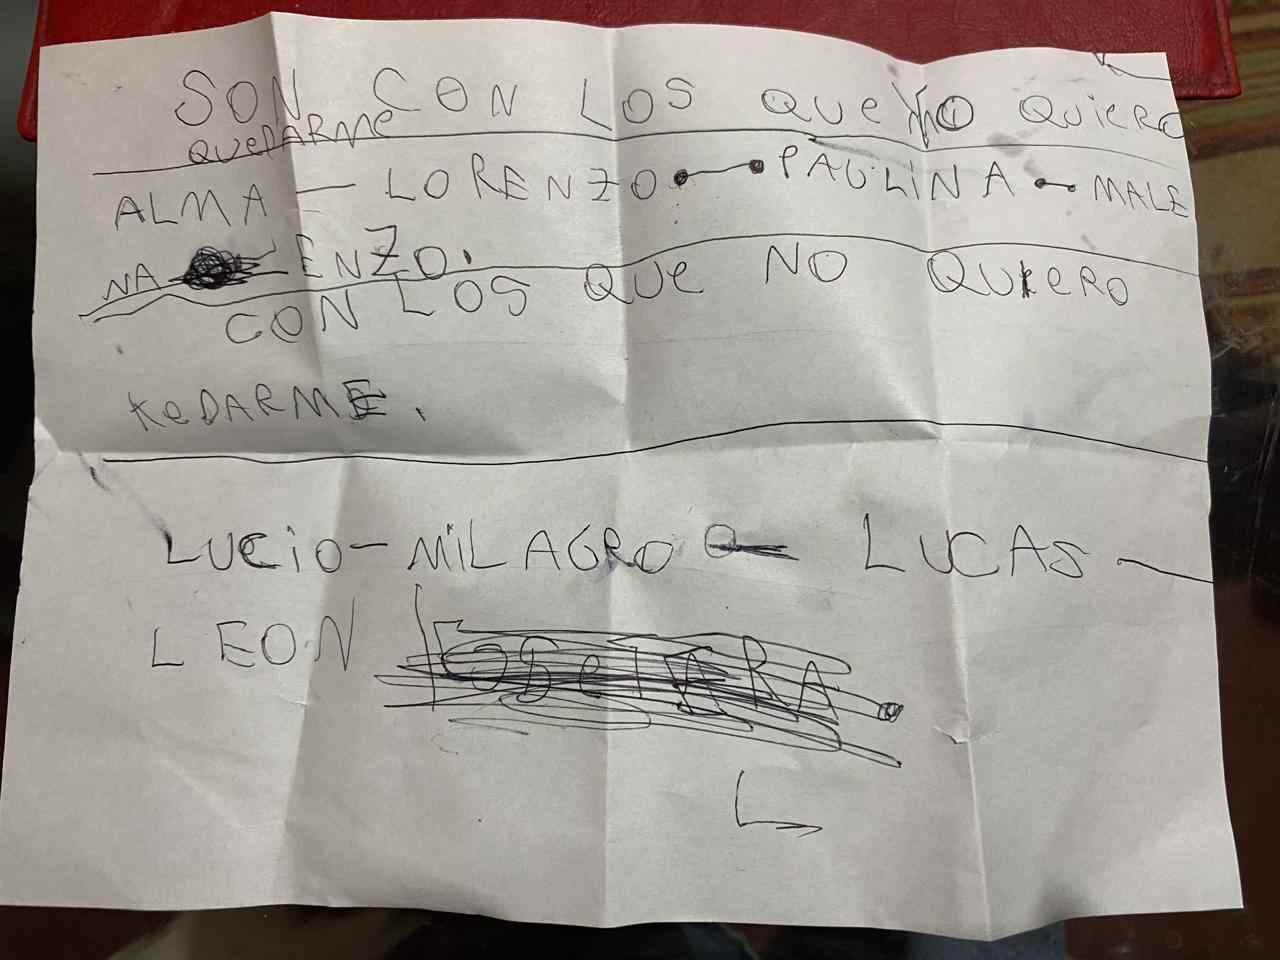 SON CON LOS QUE YO QUIERO
QUEDARME
ALMA — LORENZO — PAULINA — MALE
NA — ENZO.
CON LOS QUE NO QUIERO
KEDARME.
LUCIO — MILAGRO — LUCAS —
LEON
L